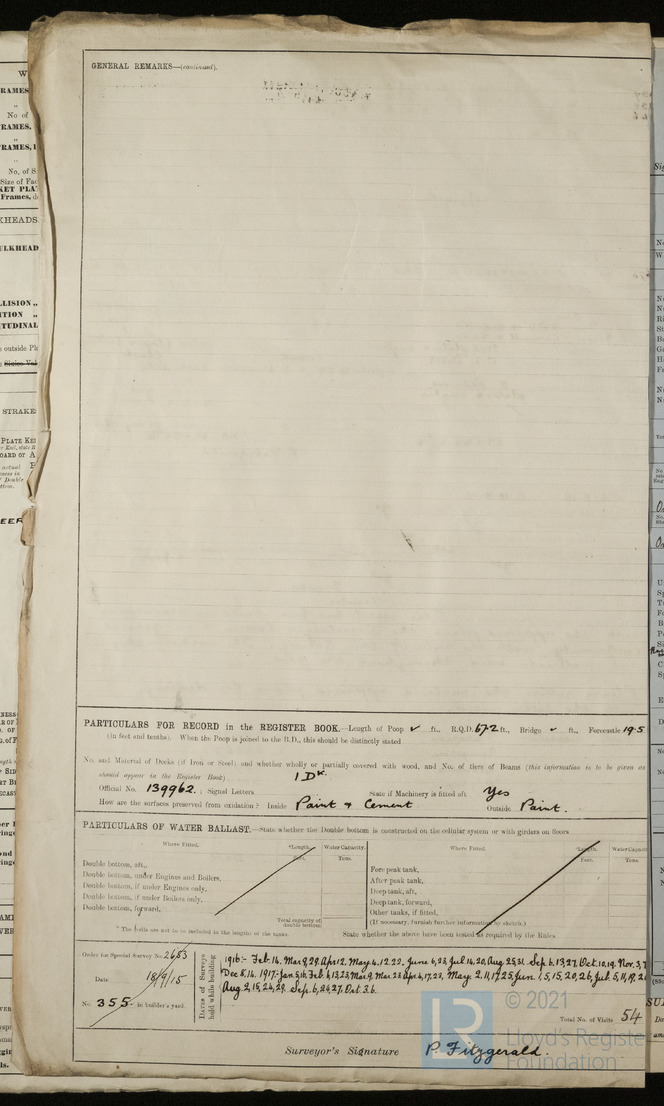 GENERAL REMARKS—(continued).
PARTICULARS FOR RECORD in the REGISTER BOOK.—Length of Poop ✓ ft., R.Q.D. 67.2 ft., Bridge ✓ ft., Forecastle 19.5
(in feet and tenths). When the Poop is joined to the B.D., this should be distinctly stated
No. and Material of Decks (if Iron or Steel) and whether wholly or partially covered with wood, and No. of tiers of Beams (this information is to be given as
should appear in the Register Book) 1 Dk.
Official No. 139962. ; Signal Letters State if Machinery is fitted aft Yes
How are the surfaces preserved from oxidation? Inside Paint & Cement Outside Paint.
PARTICULARS OF WATER BALLAST.—State whether the Double bottom is constructed on the cellular system or with girders on floors
Where Fitted. *Length. Water Capacity. Where Fitted. *Length. Water Capacity
Feet. Tons. Feet. Tons.
Double bottom, aft, Fore peak tank,
Double bottom, under Engines and Boilers, After peak tank,
Double bottom, if under Engines only, Deep tank, aft,
Double bottom, if under Boilers only, Deep tank, forward,
Double bottom, forward, Other tanks, if fitted,
Total capacity of double bottom (If necessary, furnish further information by sketch.)
* The wells are not to be included in the lengths of the tanks. State whether the above have been tested as required by the Rules
Order for Special Survey No. 2653
Date 18/9/15
No. 355 in builder's yard.
Dates of Surveys held while building
1916:- Feb. 14, Mar 9, 29. Apr 12, May 4, 12, 22. June 6, 23, Jul 14, 20, Aug. 25, 31. Sep. 6, 13, 27. Oct. 10, 19. Nov. 3, 7
Dec 8, 14. 1917- Jan 5, 16. Feb 6, 13, 23, Mar 9. Mar 23 Apr 4, 17, 23, May. 2, 11, 17, 25, June. 1, 5, 15, 20, 26, Jul. 5, 11, 19, 26
Aug. 2, 15, 24, 29. Sep. 6, 24, 27. Oct 3. 6.
Total No. of Visits 54
Surveyor's Signature P. Fitzgerald.
© 2021
LR
Lloyd's Registe
Foundation